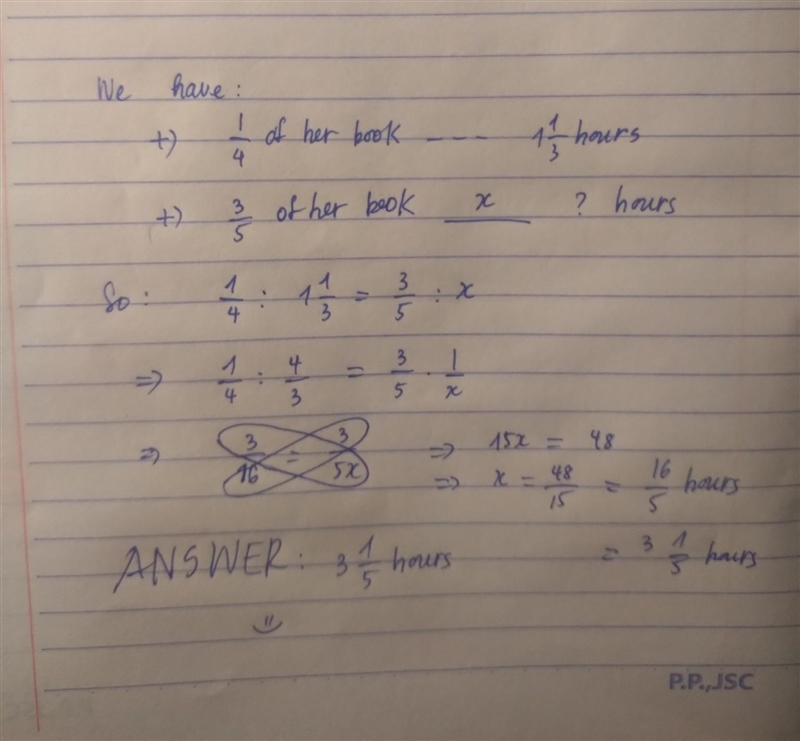 We have:
+) 1/4 of her book ---- 1 1/3 hours
+) 3/5 of her book x ? hours
So: 1/4 : 1 1/3 = 3/5 : x
=> 1/4 : 4/3 = 3/5 . 1/x
=> 3/16 = 3/5x => 15x = 48
=> x = 48/15 = 16/5 hours
ANSWER: 3 1/5 hours = 3 1/5 hours
P.P.,JSC